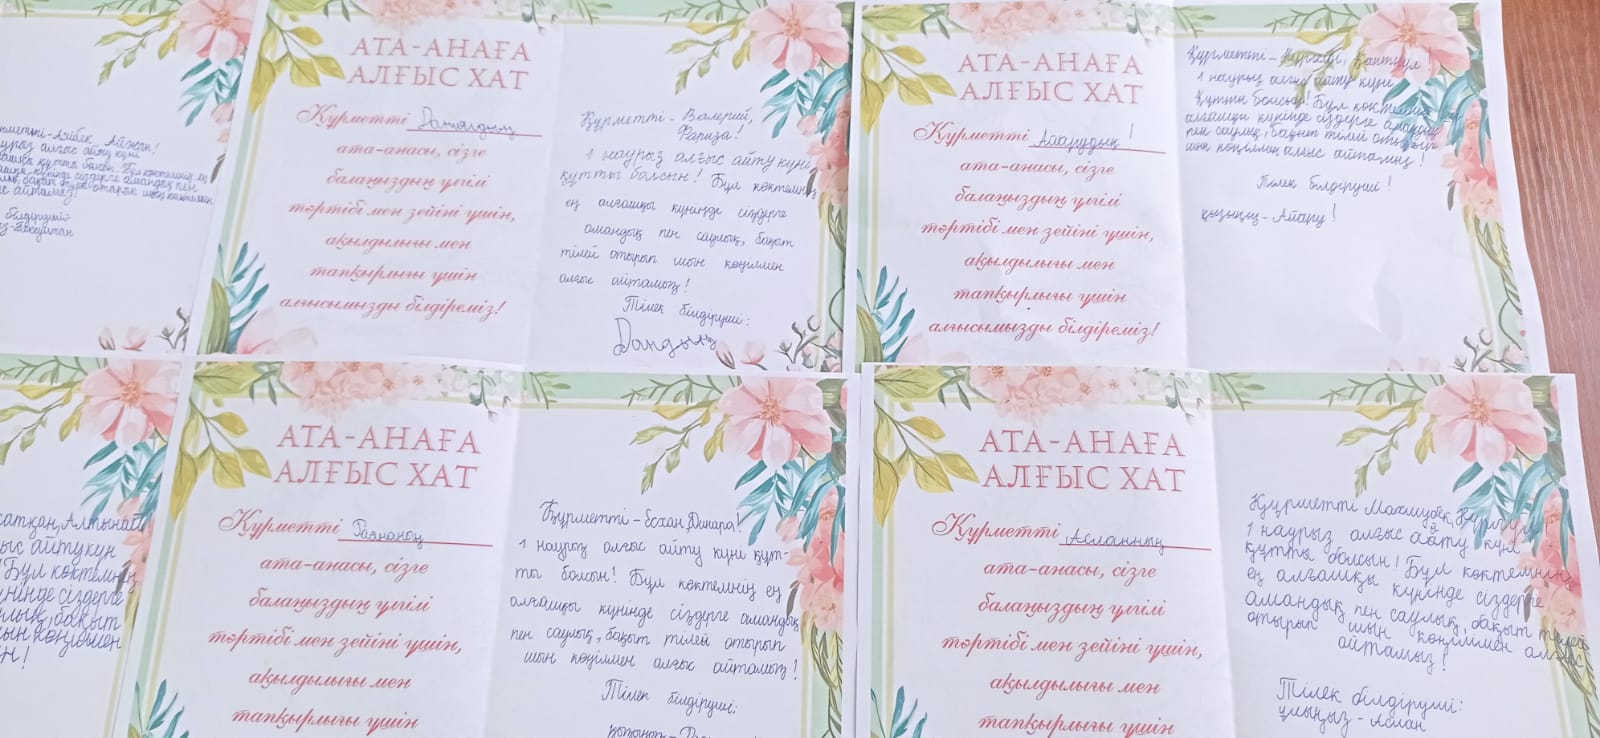 Айжан!
алғыс айту күні
АТА-АНАҒА
АЛҒЫС ХАТ
Құрметті
ата-анасы, сізге
балаңыздың үлгілі
тәртібі мен зейіні үшін,
ақылдылығы мен
тапқырлығы үшін
алғысымызды білдіреміз!
Құрметті - Валерий,
Фариза!
1 наурыз алғыс айту күні
құтты болсын! Бұл көктемнің
ең алғашқы күнінде сіздерге
амандық пен саулық, бақыт
тілей отырып шын көңілмен
алғыс айтамыз!
Тілек білдіруші:
АТА-АНАҒА
АЛҒЫС ХАТ
Құрметті Айарудың!
ата-анасы, сізге
балаңыздың үлгілі
тәртібі мен зейіні үшін,
ақылдылығы мен
тапқырлығы үшін
алғысымызды білдіреміз!
1 наурыз алғыс айту күні
Құтты болсын! Бұл көктемнің
алғашқы күнінде сіздерге амандық
пен саулық, бақыт тілей отырып
шын көңілмен алғыс айтамыз!
Тілек білдіруші!
қызыңыз - Айару!
Алтынай
алғыс айту күн
Бұл көктемнің
күнінде сіздерге
саулық, бақыт
шын көңілмен
АТА-АНАҒА
АЛҒЫС ХАТ
Құрметті
ата-анасы, сізге
балаңыздың үлгілі
тәртібі мен зейіні үшін,
ақылдылығы мен
тапқырлығы үшін
Құрметті - Динара!
1 наурыз алғыс айту күні құт-
ты болсын! Бұл көктемнің ең
алғашқы күнінде сіздерге амандық
пен саулық, бақыт тілей отырып
шын көңілмен алғыс айтамыз!
Тілек білдіруші:
АТА-АНАҒА
АЛҒЫС ХАТ
Құрметті Асланның
ата-анасы, сізге
балаңыздың үлгілі
тәртібі мен зейіні үшін,
ақылдылығы мен
тапқырлығы үшін
Құрметті Махмұбек, Нұргүл!
1 наурыз алғыс айту күні
құтты болсын! Бұл көктемнің
ең алғашқы күнінде сіздерге
амандық пен саулық, бақыт тілей
отырып шын көңілмен алғыс
айтамыз!
Тілек білдіруші:
ұлыңыз - Аслан